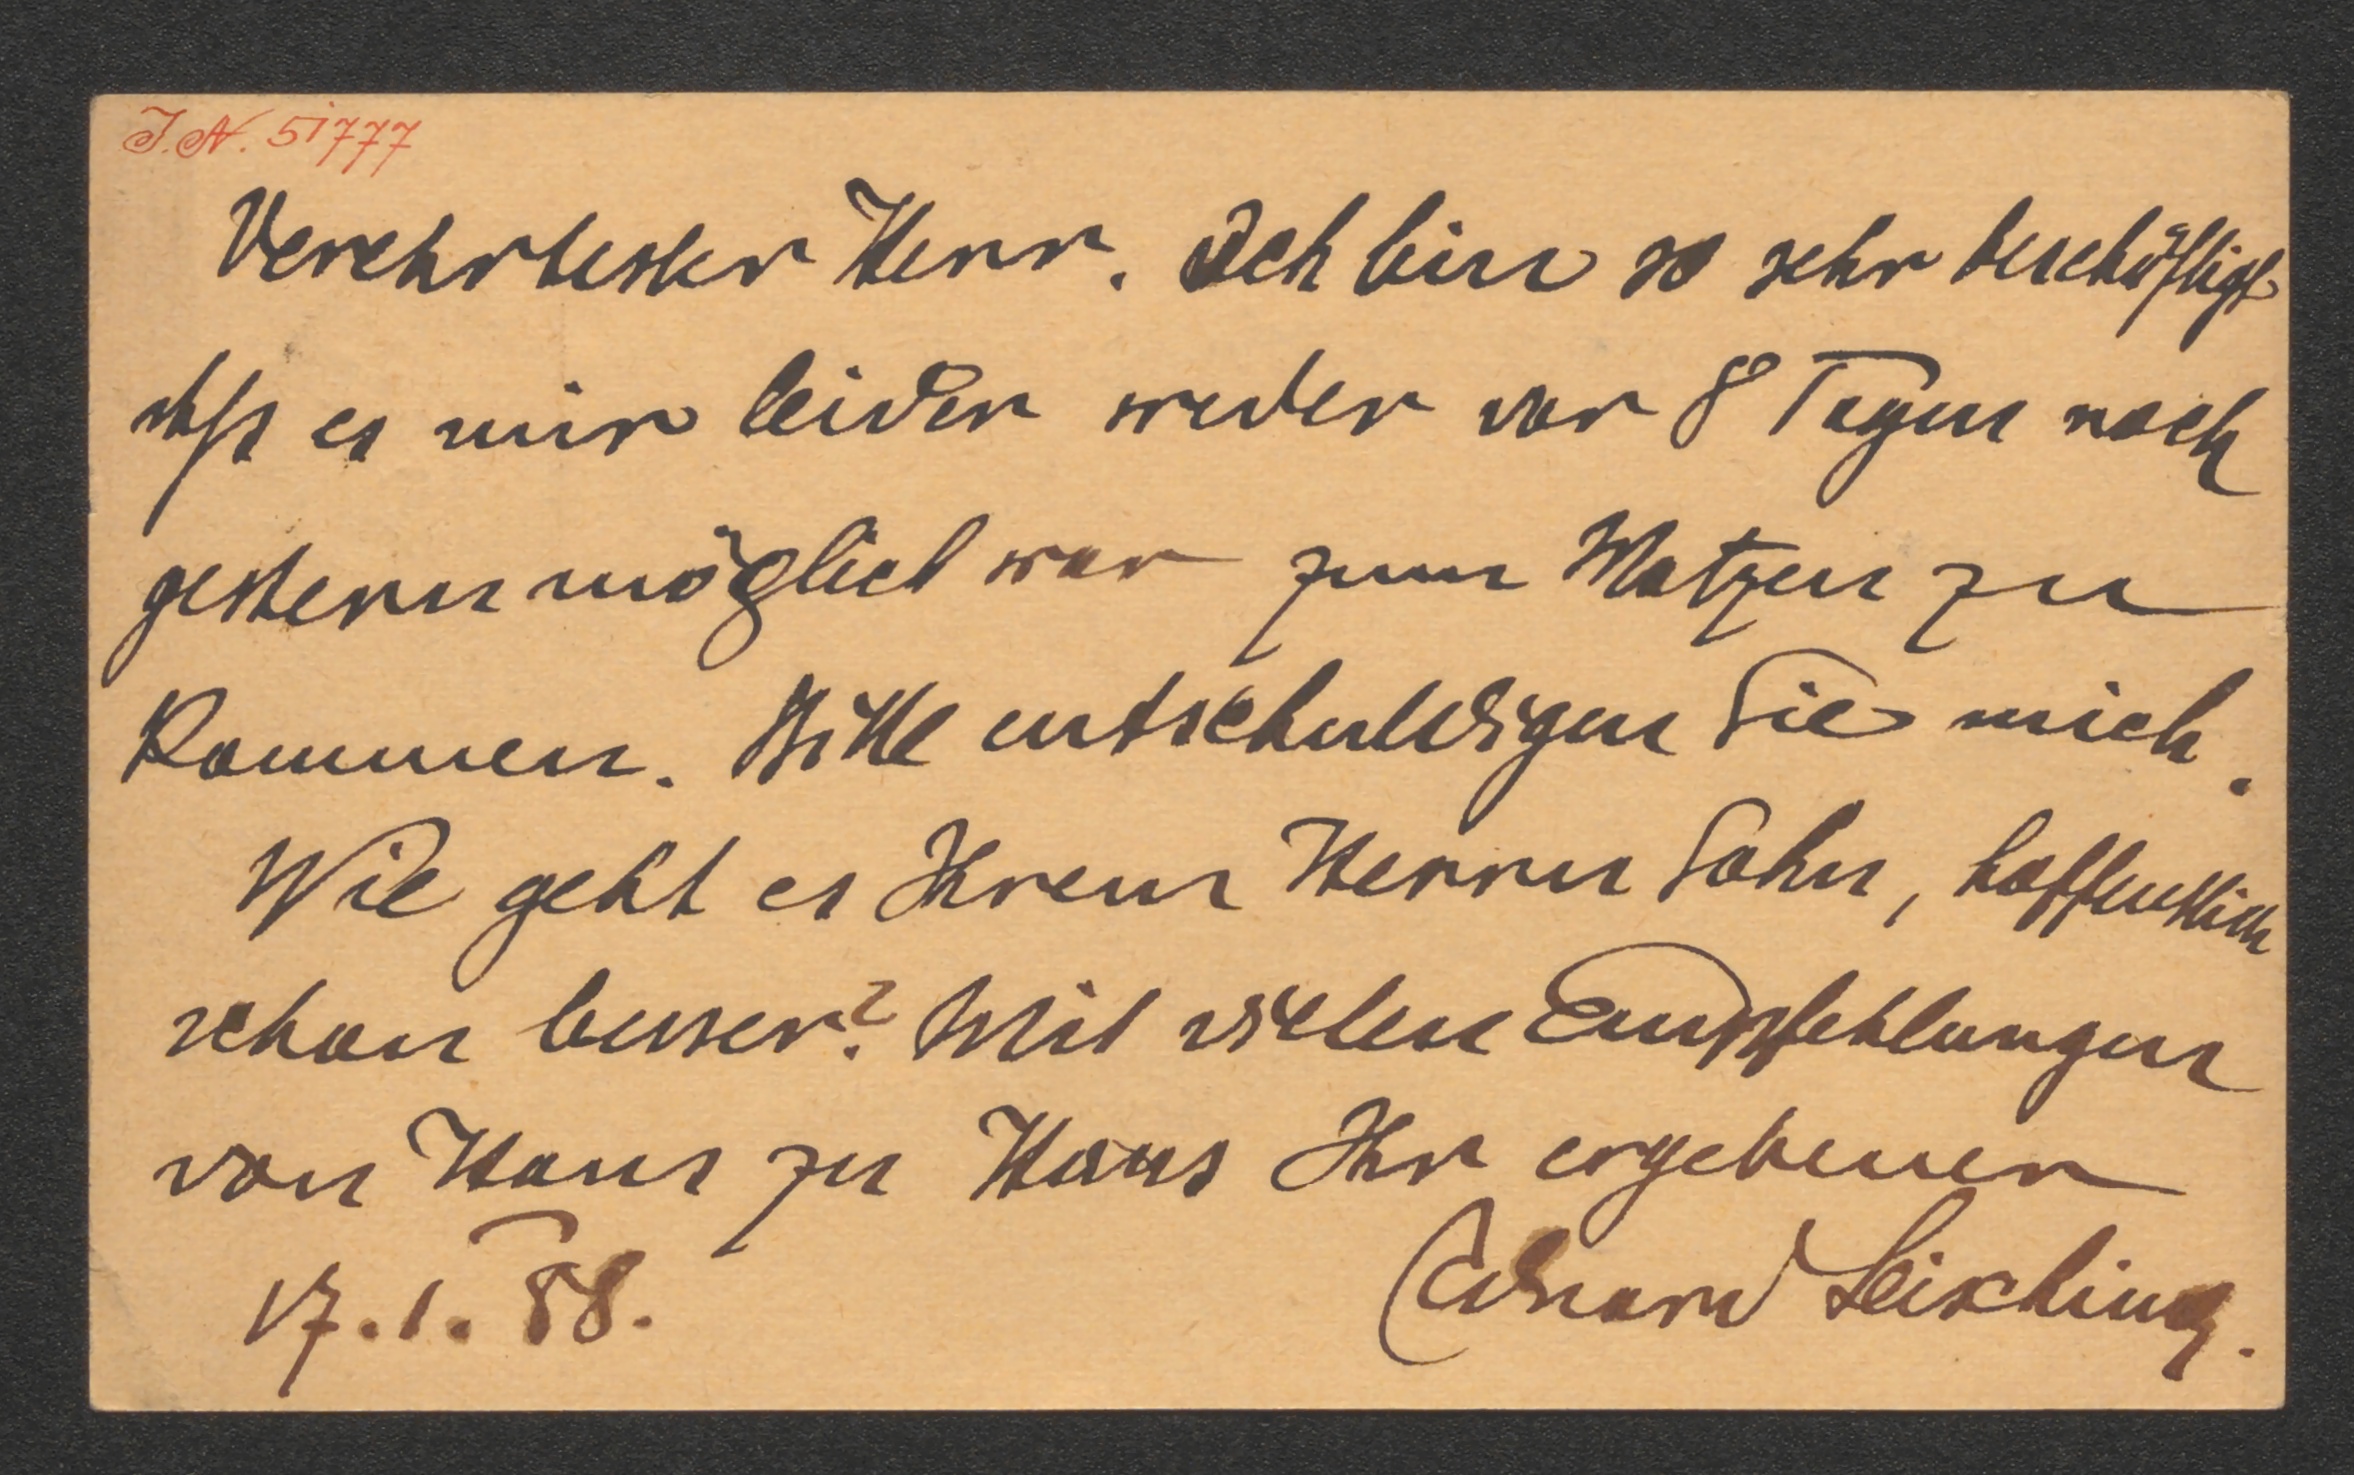 J. N. 51777
Verehrtester Herr. Ich bin so sehr beschäftigt
daß es mir leider weder vor 8 Tagen noch
gestern möglich war zum Matzen zu
Kommen. Bitte entschuldigen Sie mich.
Wie geht es Ihrem Herrn Sohn, hoffentlich
schon besser? Mit vielen Empfehlungen
von Haus zu Haus Ihr ergebener
17. 1. 88. Eduard Leisching.